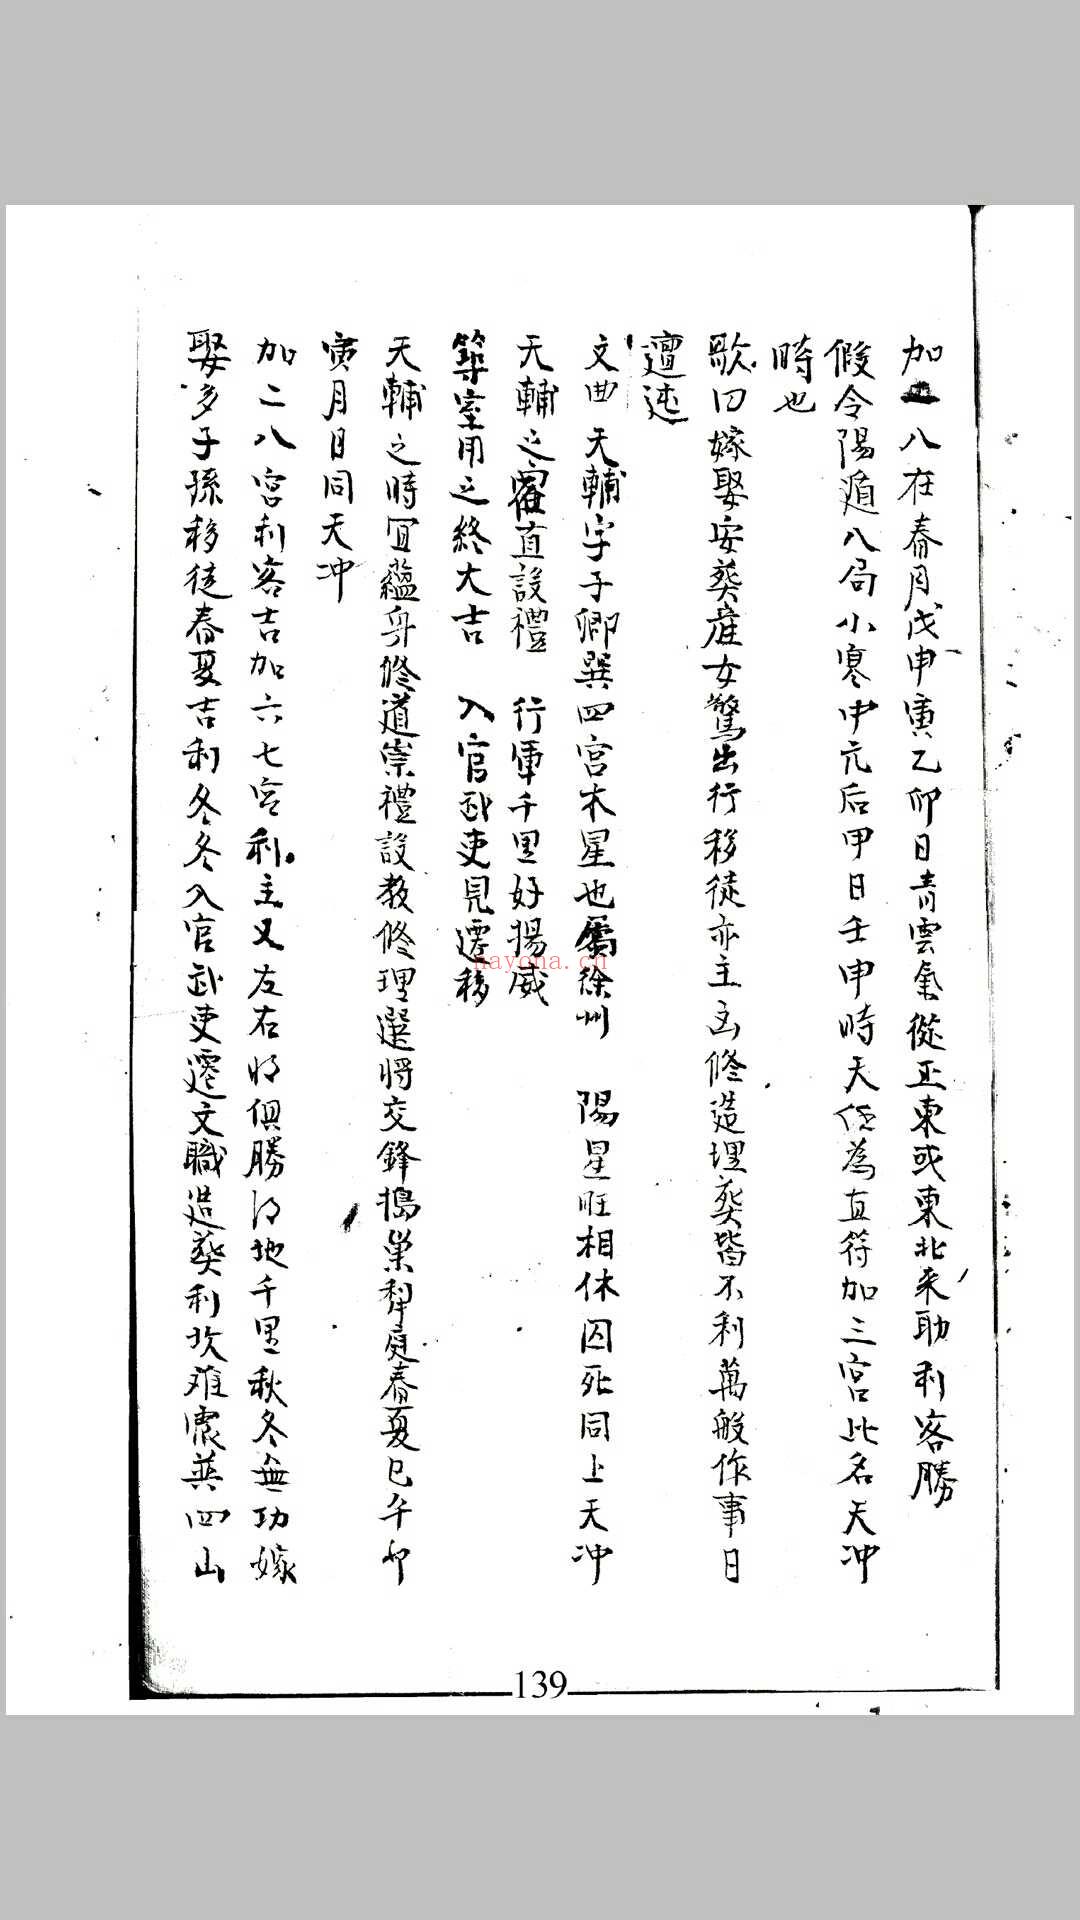 加二八在春月戊申寅乙卯日青雲氣從正東或東北來助利客勝
假令陽遁八局小寒中元后甲日壬申時天任為直符加三宮此名天冲
時也
歌曰嫁娶安葵産女驚出行移徒亦主凶修造埋葵皆不利萬般作事日
邅迍
文曲天輔字子卿巽四宮木星也屬徐州 陽星旺相休囚死同上天冲
天輔之宿直設禮 行軍千里好揚威
築室用之終大吉 入官武吏見遷移
天輔之時宜蘊身修道崇禮設教修理選將交鋒搗巢犁庭春夏巳午卯
寅月日同天冲
加二八宮利客吉加六七宮利主又左右將俱勝得地千里秋冬無功嫁
娶多子孫移徒春夏吉利冬冬入官武吏遷文職造葵利坎难震巽四山
139
nayona.cn